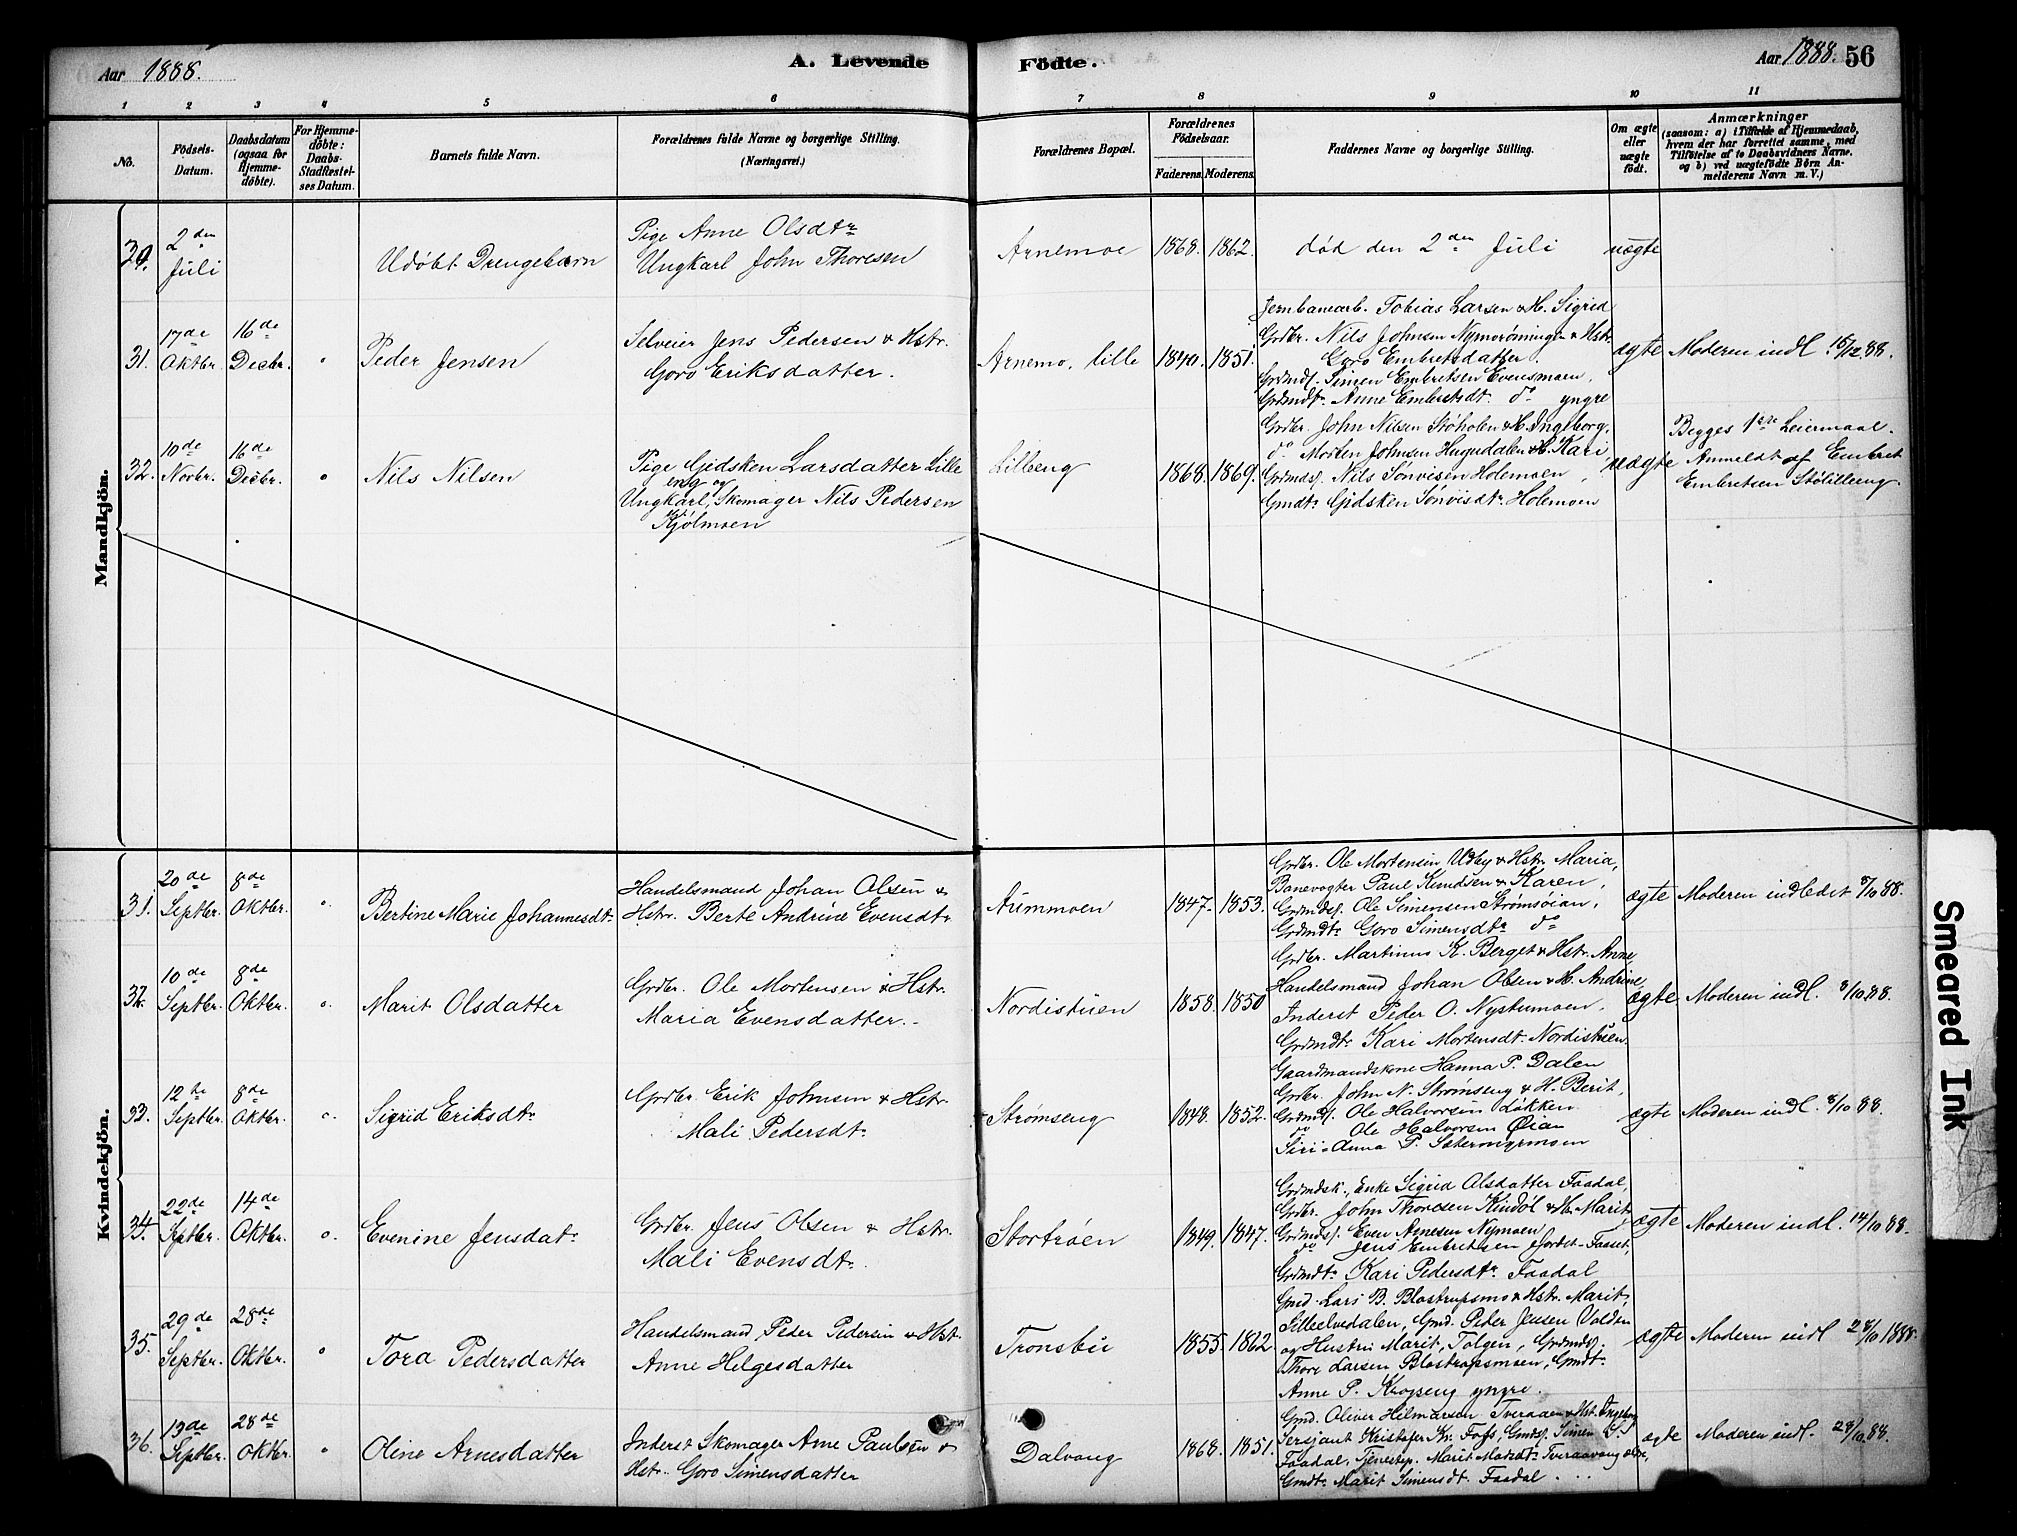 Aar 1888.
A. Levende
Födte.
Aar 1888. 56
1 2 3 4 5 6 7 8 9 10 11
No.
Födsels-Datum.
Daabsdatum (ogsaa for Hjemme-döbte).
For Hjemme-döbte: Daabs-Stadfæstel-ses Datum.
Barnets fulde Navn.
Forældrenes fulde Navne og borgerlige Stilling.
(Næringsvei.)
Forældrenes Bopæl.
Forældrenes Födselsaar.
Faderens. Moderens.
Faddernes Navne og borgerlige Stilling.
Om ægte eller uægte födt.
Anmærkninger
(saasom: a) i Tilfælde af Hjemmedaab, hvem der har forrettet samme, med Tilföielse af to Daabsvidners Navne, og b) ved uægtefödte Börn An-melderens Navn m. V.)
Mandkjön.
30.
2den Juli
Udøbt Drengebarn
Pige Anne Olsdtr
Ungkarl John Thoresen
Arnemoe
1868. 1862.
død den 2den Juli
uægte
31.
17de Oktbr.
16de Decbr.
Peder Jensen
Selveier Jens Pedersen & Hstr.
Goro Eriksdatter.
Arnemo, lille
1840. 1851.
Jernbanearb. Tobias Larsen & H. Sigrid
Grdbr. Nils Johnsen Nymorøningen & Hstr.
Goro Embretsdatter.
Grdmds. Simen Embretsen Evensmoen.
Grdmdtr. Anne Embretsdt. do yngre
ægte
Moderen indl. 16/12 88.
32.
10de Novbr.
16de Decbr.
Nils Nilsen
Pige Gidsken Larsdatter Lille
eng og
Ungkarl, Skomager Nils Pedersen
Kjølmoen
Lilleeng
1868. 1869.
Grdbr. John Nilsen Støholen & H. Ingeborg.
do Morten Johnsen & H. Kari
Grdmds. Nils Sønvisen Holemoen
Gmdtr. Gidsken Sønvisdtr. Holemoen
uægte
Begges 1ste Leiermaal.
Anmeldt af Embret
Embretsen
Kvindekjön.
31.
20de Septbr.
8de Oktbr.
Bertine Marie Johannesdt.
Handelsmand Johan Olsen &
Hstr. Berte Andrine Evensdtr
Aummoen
1847. 1853.
Grdbr. Ole Mortensen Udby & Hstr. Maria,
Banevogter Paul Knudsen & Karen,
Grdmds. Ole Simensen Strømsøian,
Grdmdtr. Goro Simensdtr do
ægte
Moderen indledet 8/10 88.
32.
10de Septbr.
8de Oktbr.
Marit Olsdatter
Grdbr. Ole Mortensen & Hstr.
Maria Evensdatter.
Nordistuen
1858. 1850
Grdbr. Martinus K. Berget & Hstr. Anne,
Handelsmand Johan Olsen & H. Andrine,
Inderst Peder O. Nystumoen,
Grdmdtr. Kari Mortensdt. Nordistuen.
ægte
Moderen indl. 8/10 88.
33.
12te Septbr.
8de Oktbr.
Sigrid Eriksdtr
Grdbr. Erik Johnsen & Hstr.
Mali Pedersdtr
Strømseng
1848. 1852.
Gaardmandskone Hanna P. Dalen
Grdbr. John N. Strømseng & H. Berit,
Grdmds. Ole Halvorsen Løkken.
do Ole Halvorsen Øian
ægte
Moderen indl. 8/10 88.
34.
22de Septbr.
14de Oktbr.
Evenine Jensdatr
Grdbr. Jens Olsen & Hstr.
Mali Evensdtr.
Stortrøen
1849. 1847.
Grdmdsk., Enke Sigrid Olsdatter Faadal,
Grdbr. John Thoresen Kindøl & H. Marit,
Grdmds. Even Arnesen Nymoen
do Jens Embretsen Jordet-Faaset,
Grdmdtr. Kari Pedersdtr. Faadal
ægte
Moderen indl. 14/10 88.
35.
29de Septbr.
28de Oktbr.
Tora Pedersdatter
Handelsmand Peder Pedersen & Hst.
Anne Helgesdatter
Tronsbu
1855 1862
Gmd. Lars B. Blostrupsmo & Hstr. Marit,
Lilleelvedalen, Gmd. Peder Jensen Volden
og Hustru Marit, Tolgen, Grdmds.
Thore Larsen Blostrupsmoen, Gmdtr.
Anne P. Krogseng yngre.
ægte
Moderen indl 28/10 1888.
36.
19de Septbr.
28de Oktbr.
Oline Arnesdatter
Inderst Skomager Arne Paulsen &
Hstr. Goro Simensdatter
Dalvang
1868. 1851.
Gmd. Oliver Hilmarsen Tveraaen & Hst. Ingeborg
Sersjant Kristofer Kr. Foss, Gmds. Simen
Faadal, Tjenestep. Marit
Gmdtr. Marit Simensdt. Faadal
ægte
Moderen indl. 28/10 88.
Smeared Ink